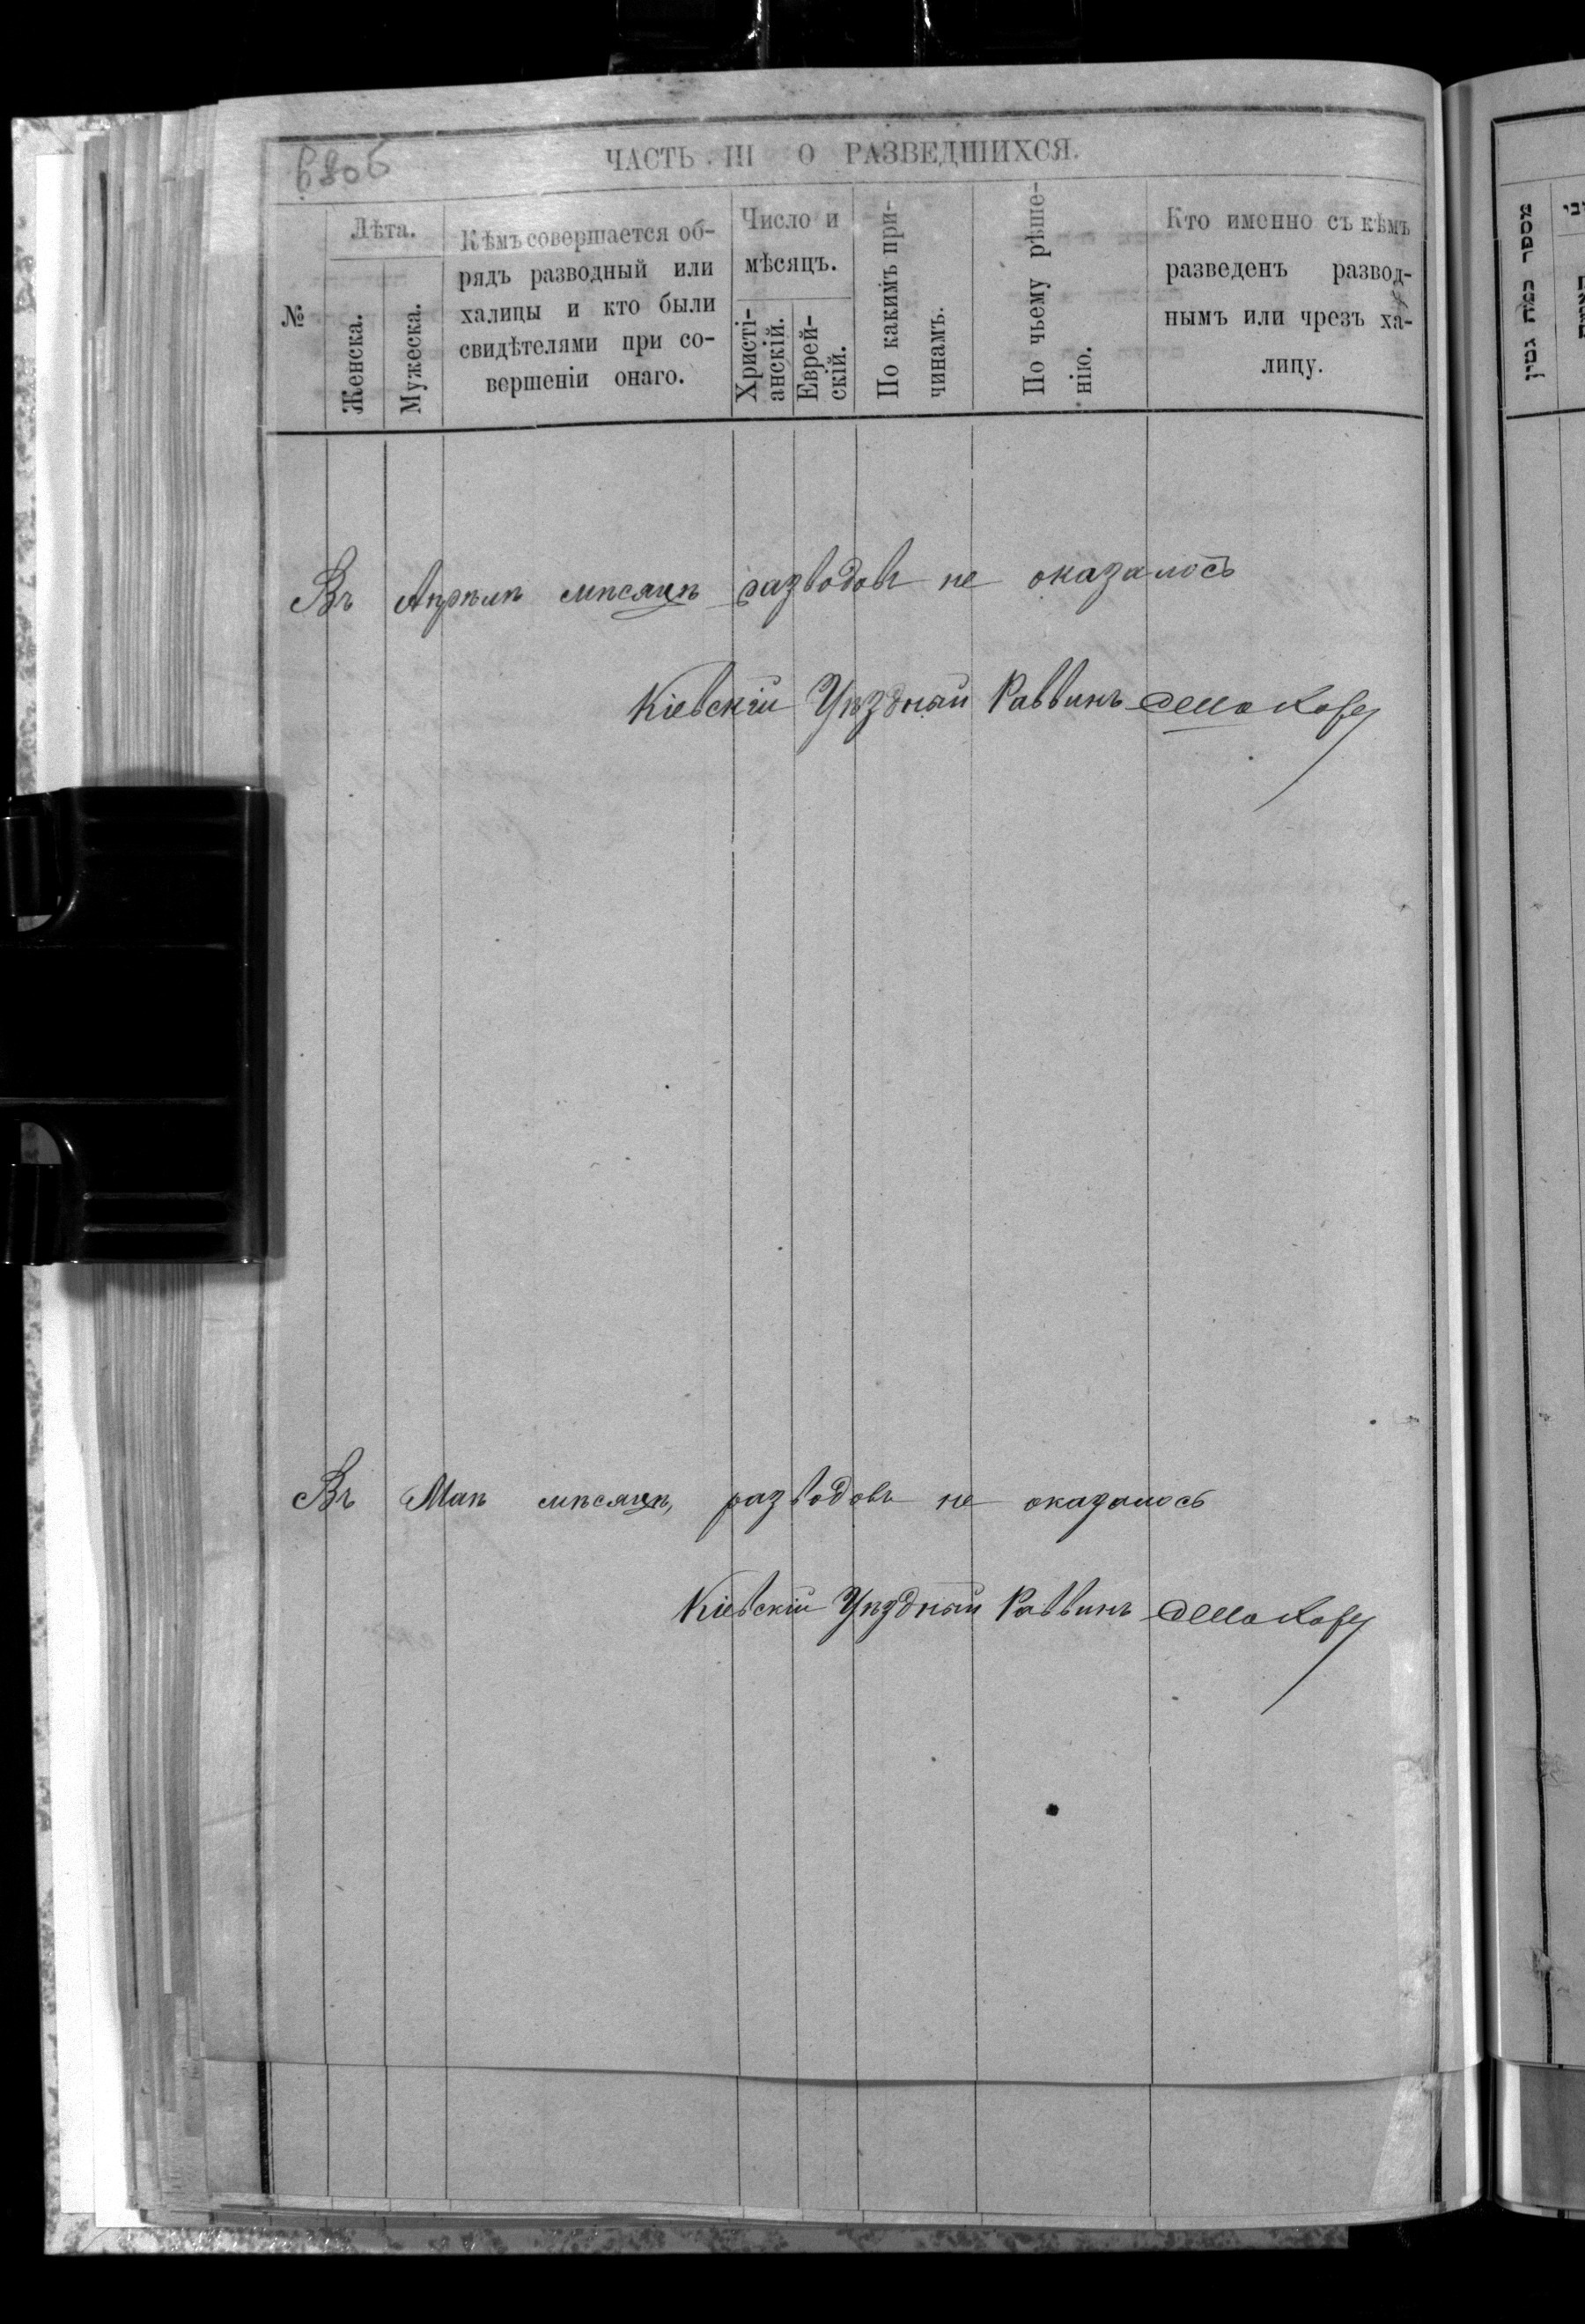 680б
ЧАСТЬ III О РАЗВЕДШИХСЯ.
№
Лѣта.
Женска.
Мужеска.
Кѣмъ совершается об-
рядъ разводный или
халицы и кто были
свидѣтелями при со-
вершеніи онаго.
Число и
мѣсяцъ.
Христі-
анскій.
Еврей-
скій.
По какимъ при-
чинамъ.
По чьему рѣше-
нію.
Кто именно съ кѣмъ
разведенъ развод-
нымъ или чрезъ ха-
лицу.
מספר כמה גטין
Въ Апрѣлѣ мѣсяцѣ разводовъ не оказалось
Кіевскій Уѣздный Раввинъ
Въ Маѣ мѣсяцѣ, разводовъ не оказалось
Кіевскій Уѣздный Раввинъ